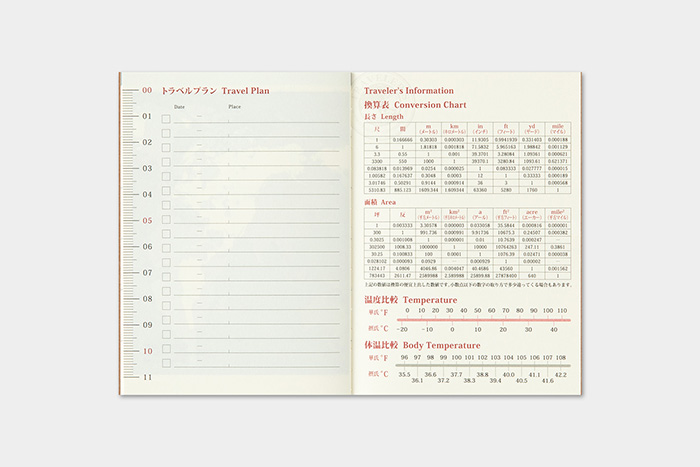 00
01
02
03
04
05
06
07
08
09
10
11
トラベルプラン Travel Plan
Date Place
Traveler's Information
換算表 Conversion Chart
長さ Length
尺 間 m km in ft yd mile
(メートル) (キロメートル) (インチ) (フィート) (ヤード) (マイル)
1 0.166666 0.30303 0.000303 11.9305 0.9941939 0.331403 0.000188
6 1 1.81818 0.001818 71.5832 5.965163 1.98842 0.001129
3.3 0.55 1 0.001 39.3701 3.28084 1.09361 0.000621
3300 550 1000 1 39370.1 3280.84 1093.61 0.621371
0.083818 0.013969 0.0254 0.000025 1 0.083333 0.027777 0.000015
1.00582 0.167637 0.3048 0.0003 12 1 0.33333 0.000189
3.01746 0.50291 0.9144 0.000914 36 3 1 0.000568
5310.83 885.123 1609.344 1.609344 63360 5280 1760 1
面積 Area
坪 m² km² a ft² acre mile²
(アール) (エーカー)
1 0.003333 3.30578 0.000003 0.033058 35.5844 0.000816 0.000001
300 1 991.736 0.000991 9.91736 10675.3 0.24507 0.000382
0.3025 0.001008 1 0.000001 0.01 10.7639 0.000247 —
302500 1008.33 1000000 1 10000 10764263 247.11 0.3861
30.25 0.100833 100 0.0001 1 1076.39 0.02471 0.000038
0.028102 0.000093 0.0929 — 0.000929 1 0.00002 —
1224.17 4046.86 0.004047 40.4686 43560 1 0.001562
783443 2611.47 2589988 2.589988 25899.88 27878400 640 1
上記の数値は換算の便宜上出した数値です。小数点以下の数字の取り方で多少違ってくる場合もあります。
温度比較 Temperature
華氏 °F 0 10 20 30 40 50 60 70 80 90 100 110
摂氏 °C -20 -10 0 10 20 30 40
体温比較 Body Temperature
華氏 °F 96 97 98 99 100 101 102 103 104 105 106 107 108
摂氏 °C 35.5 36.6 37.7 38.8 40.0 41.1 42.2
36.1 37.2 38.3 39.4 40.5 41.6